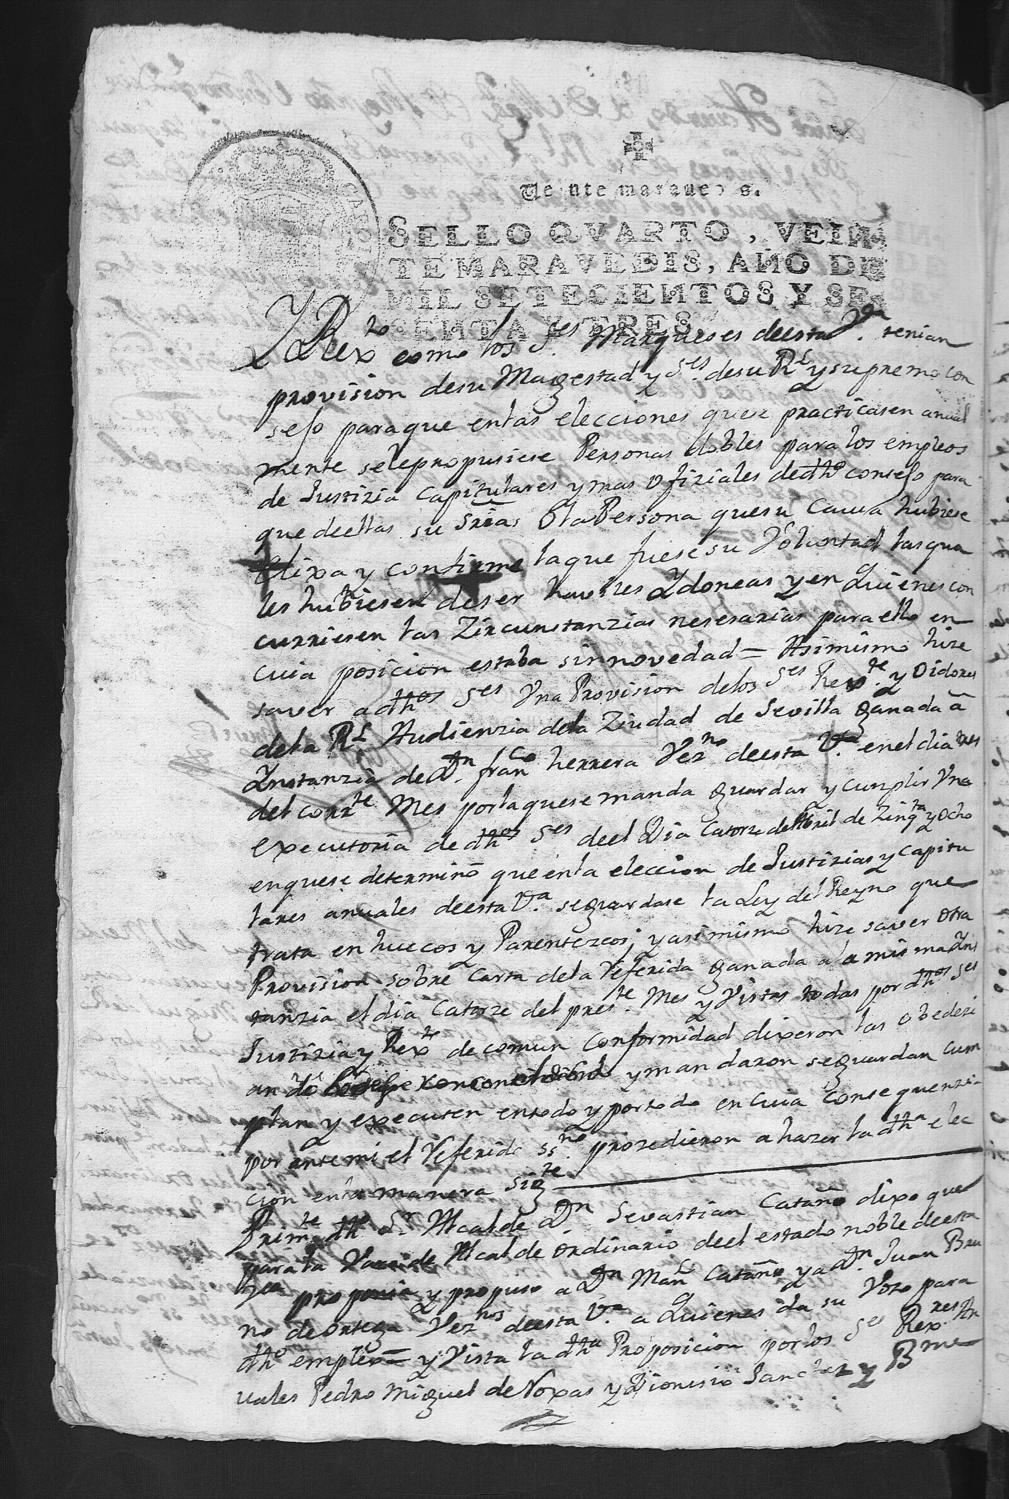 Veinte maravedis.
SELLO QVARTO, VEIN
TE MARAVEDIS, AÑO DE
MIL SETECIENTOS Y SE
SENTA Y TRES.
como los Ses. Marqueses deesta Va. tenian
provision desu Magestad y Ses. desu Rl. y supremo con
sejo paraque enlas elecciones quese practicasen anual
mente selepropusiese Personas dobles para los empleos
de Justizia Capitulares y mas ofiziales dedho consejo para
que deellas su Srias o la Persona quesu Causa hubiese
Elixa y confirme laque fuese su Voluntad lasqua
les hubiesen deser haviles Ydoneas y en Quienes con
curriesen las Zircunstanzias nesesarias para ello en
cuia posicion estaba sin novedad = Asimismo hize
saver adhos Ses Vna Provision delos Ses Rexte. y Oidores
dela Rl Audienzia dela Ziudad de Sevilla ganada a
Ynstanzia de Dn. franco herrera Vezno deesta Va. enel dia tres
del corrte Mes porlaquese manda guardar y cumplir Vna
executoria de dhos Ses deel Dia Catorze de Abril de Zinqta y Ocho
enquese determino que enla eleccion de Justizias y Capitu
lares anuales deesta Va. seguardase la Ley del Reyno que
trata en huecos y Parentezcos; y asimismo hize saver otra
Provision sobre Carta dela referida ganada ala misma Yns
tanzia el dia Catorze del preste. Mes y Vistas todas por dhos Ses
Justizia y Rexto de comun Conformidad dixeron las obedezi
an y mandaron seguardan cum
plan y executen entodo y portodo en Cuia Consequenzia
por antemi el referido Ssno. prozedieron ahazer la dha elec
cion enla manera Sigte
Primte dho Sr. Alcalde Dn Sevastian Cataño dixo que
para la Vara de Alcalde ordinario deel estado noble deesta
Va proponia y propuso a Dn Manl Cataño y a Dn. Juan Bru
no de ortega Veznos deesta Va a Quienes da su Voto para
dho empleo = y Vista la dha Proposicion porlos Ses Rexres An
uales Pedro Miguel de Roxas y Dionisio Sanchez y Bme